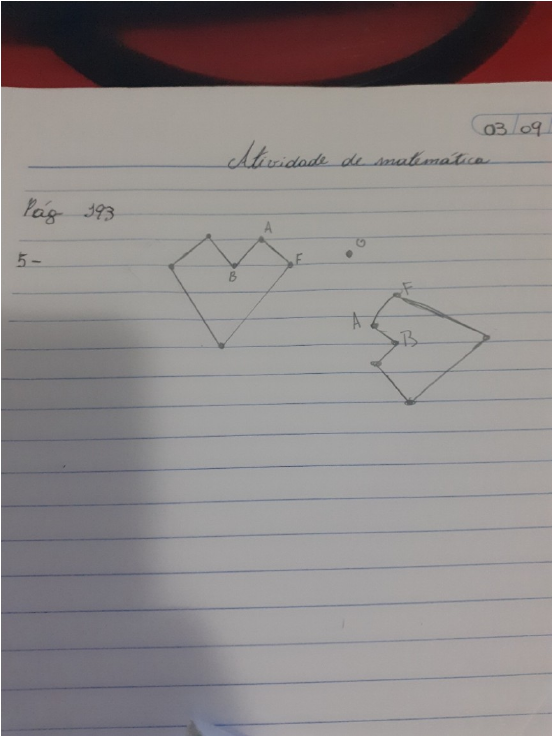 03/09
Atividade de matemática
Pág 193
5-
A
B
F
O
F
A
B